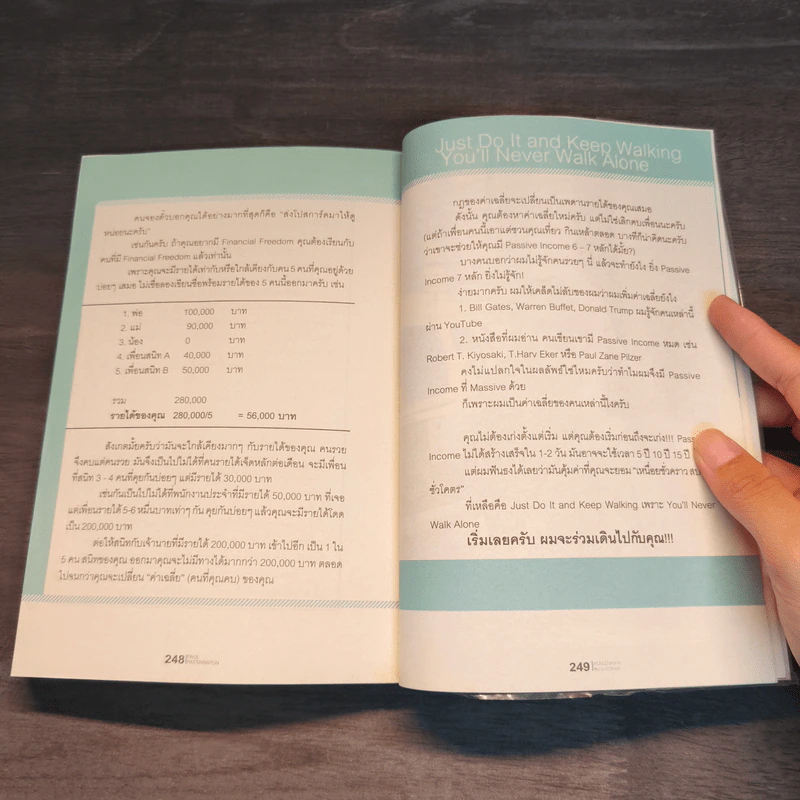 คนจองตั๋วบอกคุณได้อย่างมากที่สุดก็คือ "ส่งโปสการ์ดมาให้ดู
หน่อยนะครับ"
เช่นกันครับ ถ้าคุณอยากมี Financial Freedom คุณต้องเรียนกับ
คนที่มี Financial Freedom แล้วเท่านั้น
เพราะคุณจะมีรายได้เท่ากับหรือใกล้เคียงกับคน 5 คนที่คุณอยู่ด้วย
บ่อยๆ เสมอ ไม่เชื่อลองเขียนชื่อพร้อมรายได้ของ 5 คนนี้ออกมาครับ เช่น
1. พ่อ 100,000 บาท
2. แม่ 90,000 บาท
3. น้อง 0 บาท
4. เพื่อนสนิท A 40,000 บาท
5. เพื่อนสนิท B 50,000 บาท
รวม 280,000
รายได้ของคุณ 280,000/5 = 56,000 บาท
สังเกตมั้ยครับว่ามันจะใกล้เคียงมากๆ กับรายได้ของคุณ คนรวย
จึงคบแต่คนรวย มันจึงเป็นไปไม่ได้ที่คนรายได้เจ็ดหลักต่อเดือน จะมีเพื่อน
ที่สนิท 3 - 4 คนที่คุยกันบ่อยๆ แต่มีรายได้ 30,000 บาท
เช่นกันเป็นไปไม่ได้ที่พนักงานประจำที่มีรายได้ 50,000 บาท ที่เจอ
แต่เพื่อนรายได้ 5-6 หมื่นบาทเท่าๆ กัน คุยกันบ่อยๆ แล้วคุณจะมีรายได้โดด
เป็น 200,000 บาท
ต่อให้สนิทกับเจ้านายที่มีรายได้ 200,000 บาท เข้าไปอีก เป็น 1 ใน
5 คน สนิทของคุณ ออกมาคุณจะไม่มีทางได้มากกว่า 200,000 บาท ตลอด
ไปจนกว่าคุณจะเปลี่ยน "ค่าเฉลี่ย" (คนที่คุณคบ) ของคุณ
248
Just Do It and Keep Walking
You'll Never Walk Alone
กฎของค่าเฉลี่ยจะเปลี่ยนเป็นเพดานรายได้ของคุณเสมอ
ดังนั้น คุณต้องหาค่าเฉลี่ยใหม่ครับ แต่ไม่ใช่เลิกคบเพื่อนนะครับ
(แต่ถ้าเพื่อนคนนี้เอาแต่ชวนคุณเที่ยว กินเหล้าตลอด บางทีก็น่าคิดนะครับ
ว่าเขาจะช่วยให้คุณมี Passive Income 6 – 7 หลักได้มั้ย?)
บางคนบอกว่าผมไม่รู้จักคนรวยๆ นี่ แล้วจะทำยังไง ยิ่ง Passive
Income 7 หลัก ยิ่งไม่รู้จัก!
ง่ายมากครับ ผมให้เคล็ดไม่ลับของผมว่าผมเพิ่มค่าเฉลี่ยยังไง
1. Bill Gates, Warren Buffet, Donald Trump ผมรู้จักคนเหล่านี้
ผ่าน YouTube
2. หนังสือที่ผมอ่าน คนเขียนเขามี Passive Income หมด เช่น
Robert T. Kiyosaki, T.Harv Eker หรือ Paul Zane Pilzer
คงไม่แปลกใจในผลลัพธ์ใช่ไหมครับว่าทำไมผมจึงมี Passive
Income ที่ Massive ด้วย
ก็เพราะผมเป็นค่าเฉลี่ยของคนเหล่านี้ไงครับ
คุณไม่ต้องเก่งตั้งแต่เริ่ม แต่คุณต้องเริ่มก่อนถึงจะเก่ง!!!
Income ไม่ได้สร้างเสร็จใน 1-2 วัน มันอาจจะใช้เวลา 5 ปี 10 ปี 15 ปี
แต่ผมฟันธงได้เลยว่ามันคุ้มค่าที่คุณจะยอม "เหนื่อยชั่วคราว
ชั่วโคตร"
ที่เหลือคือ Just Do It and Keep Walking เพราะ You'll Never
Walk Alone
เริ่มเลยครับ ผมจะร่วมเดินไปกับคุณ!!!
249